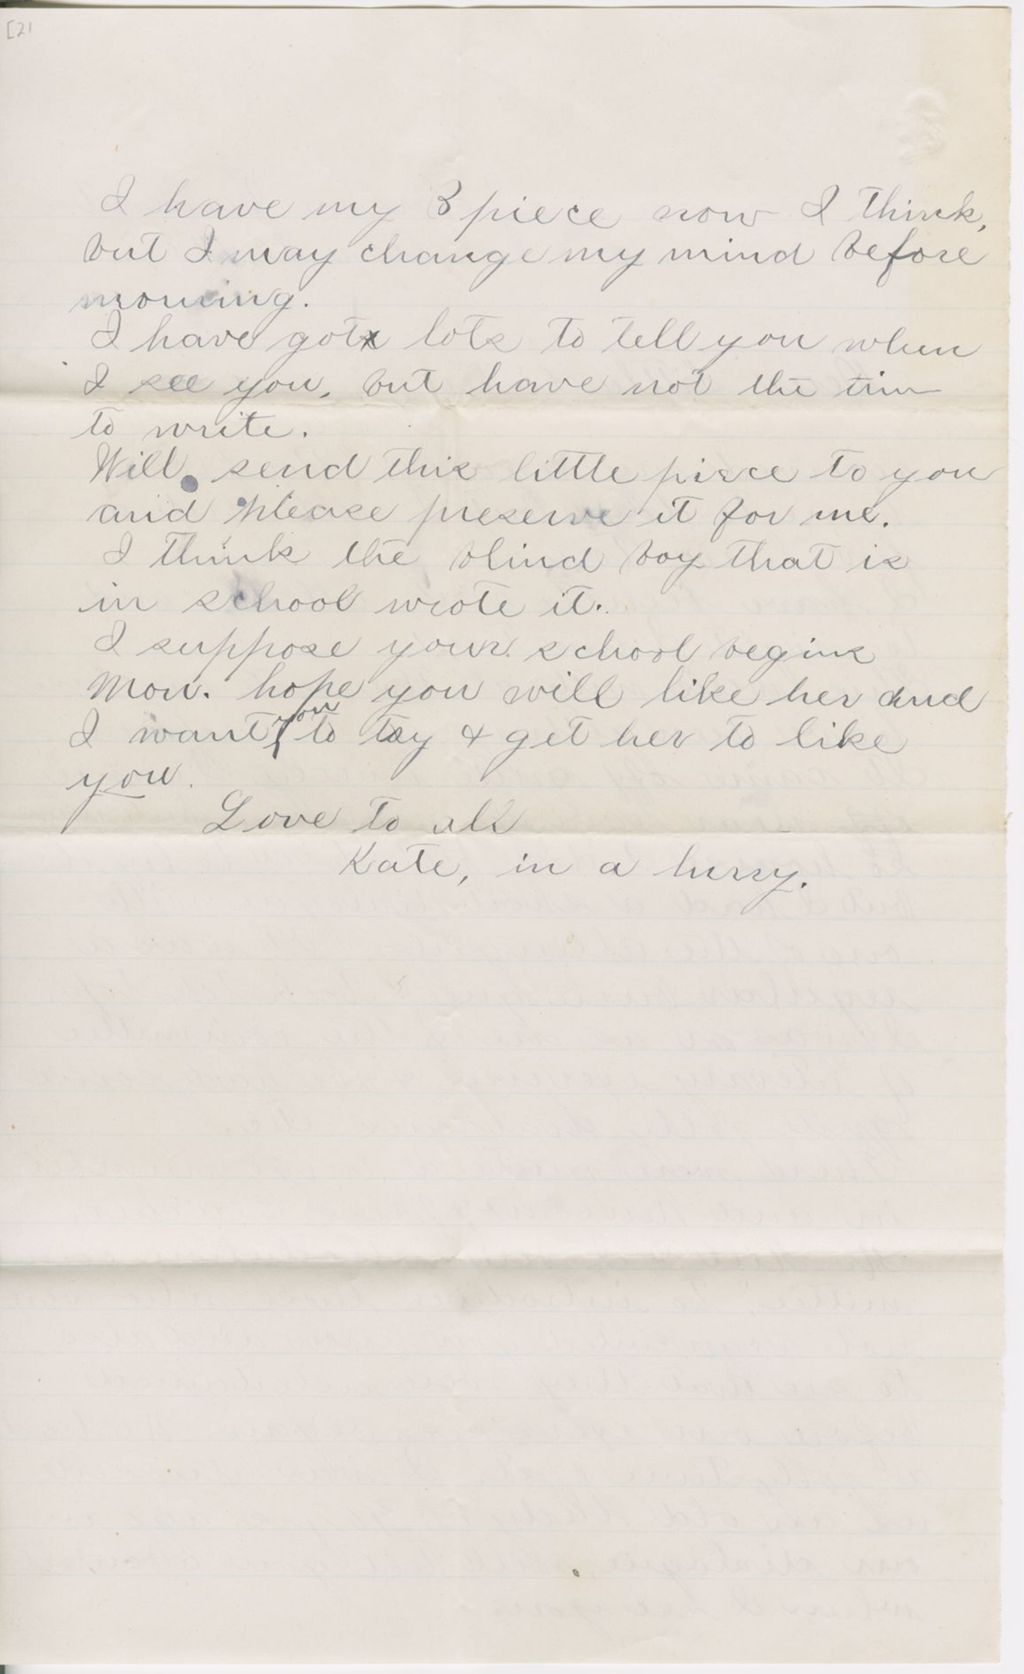 [2]
I have my 3 piece now I think,
but I may change my mind before
morning.
I have got lots to tell you when
I see you, but have not the tim
to write.
Will send this little piece to you
and please preserve it for me.
I think the blind boy that is
in school wrote it.
I suppose your school begins
Mon. hope you will like her and
I want you to try & get her to like
you.
Love to all
Kate, in a hurry.